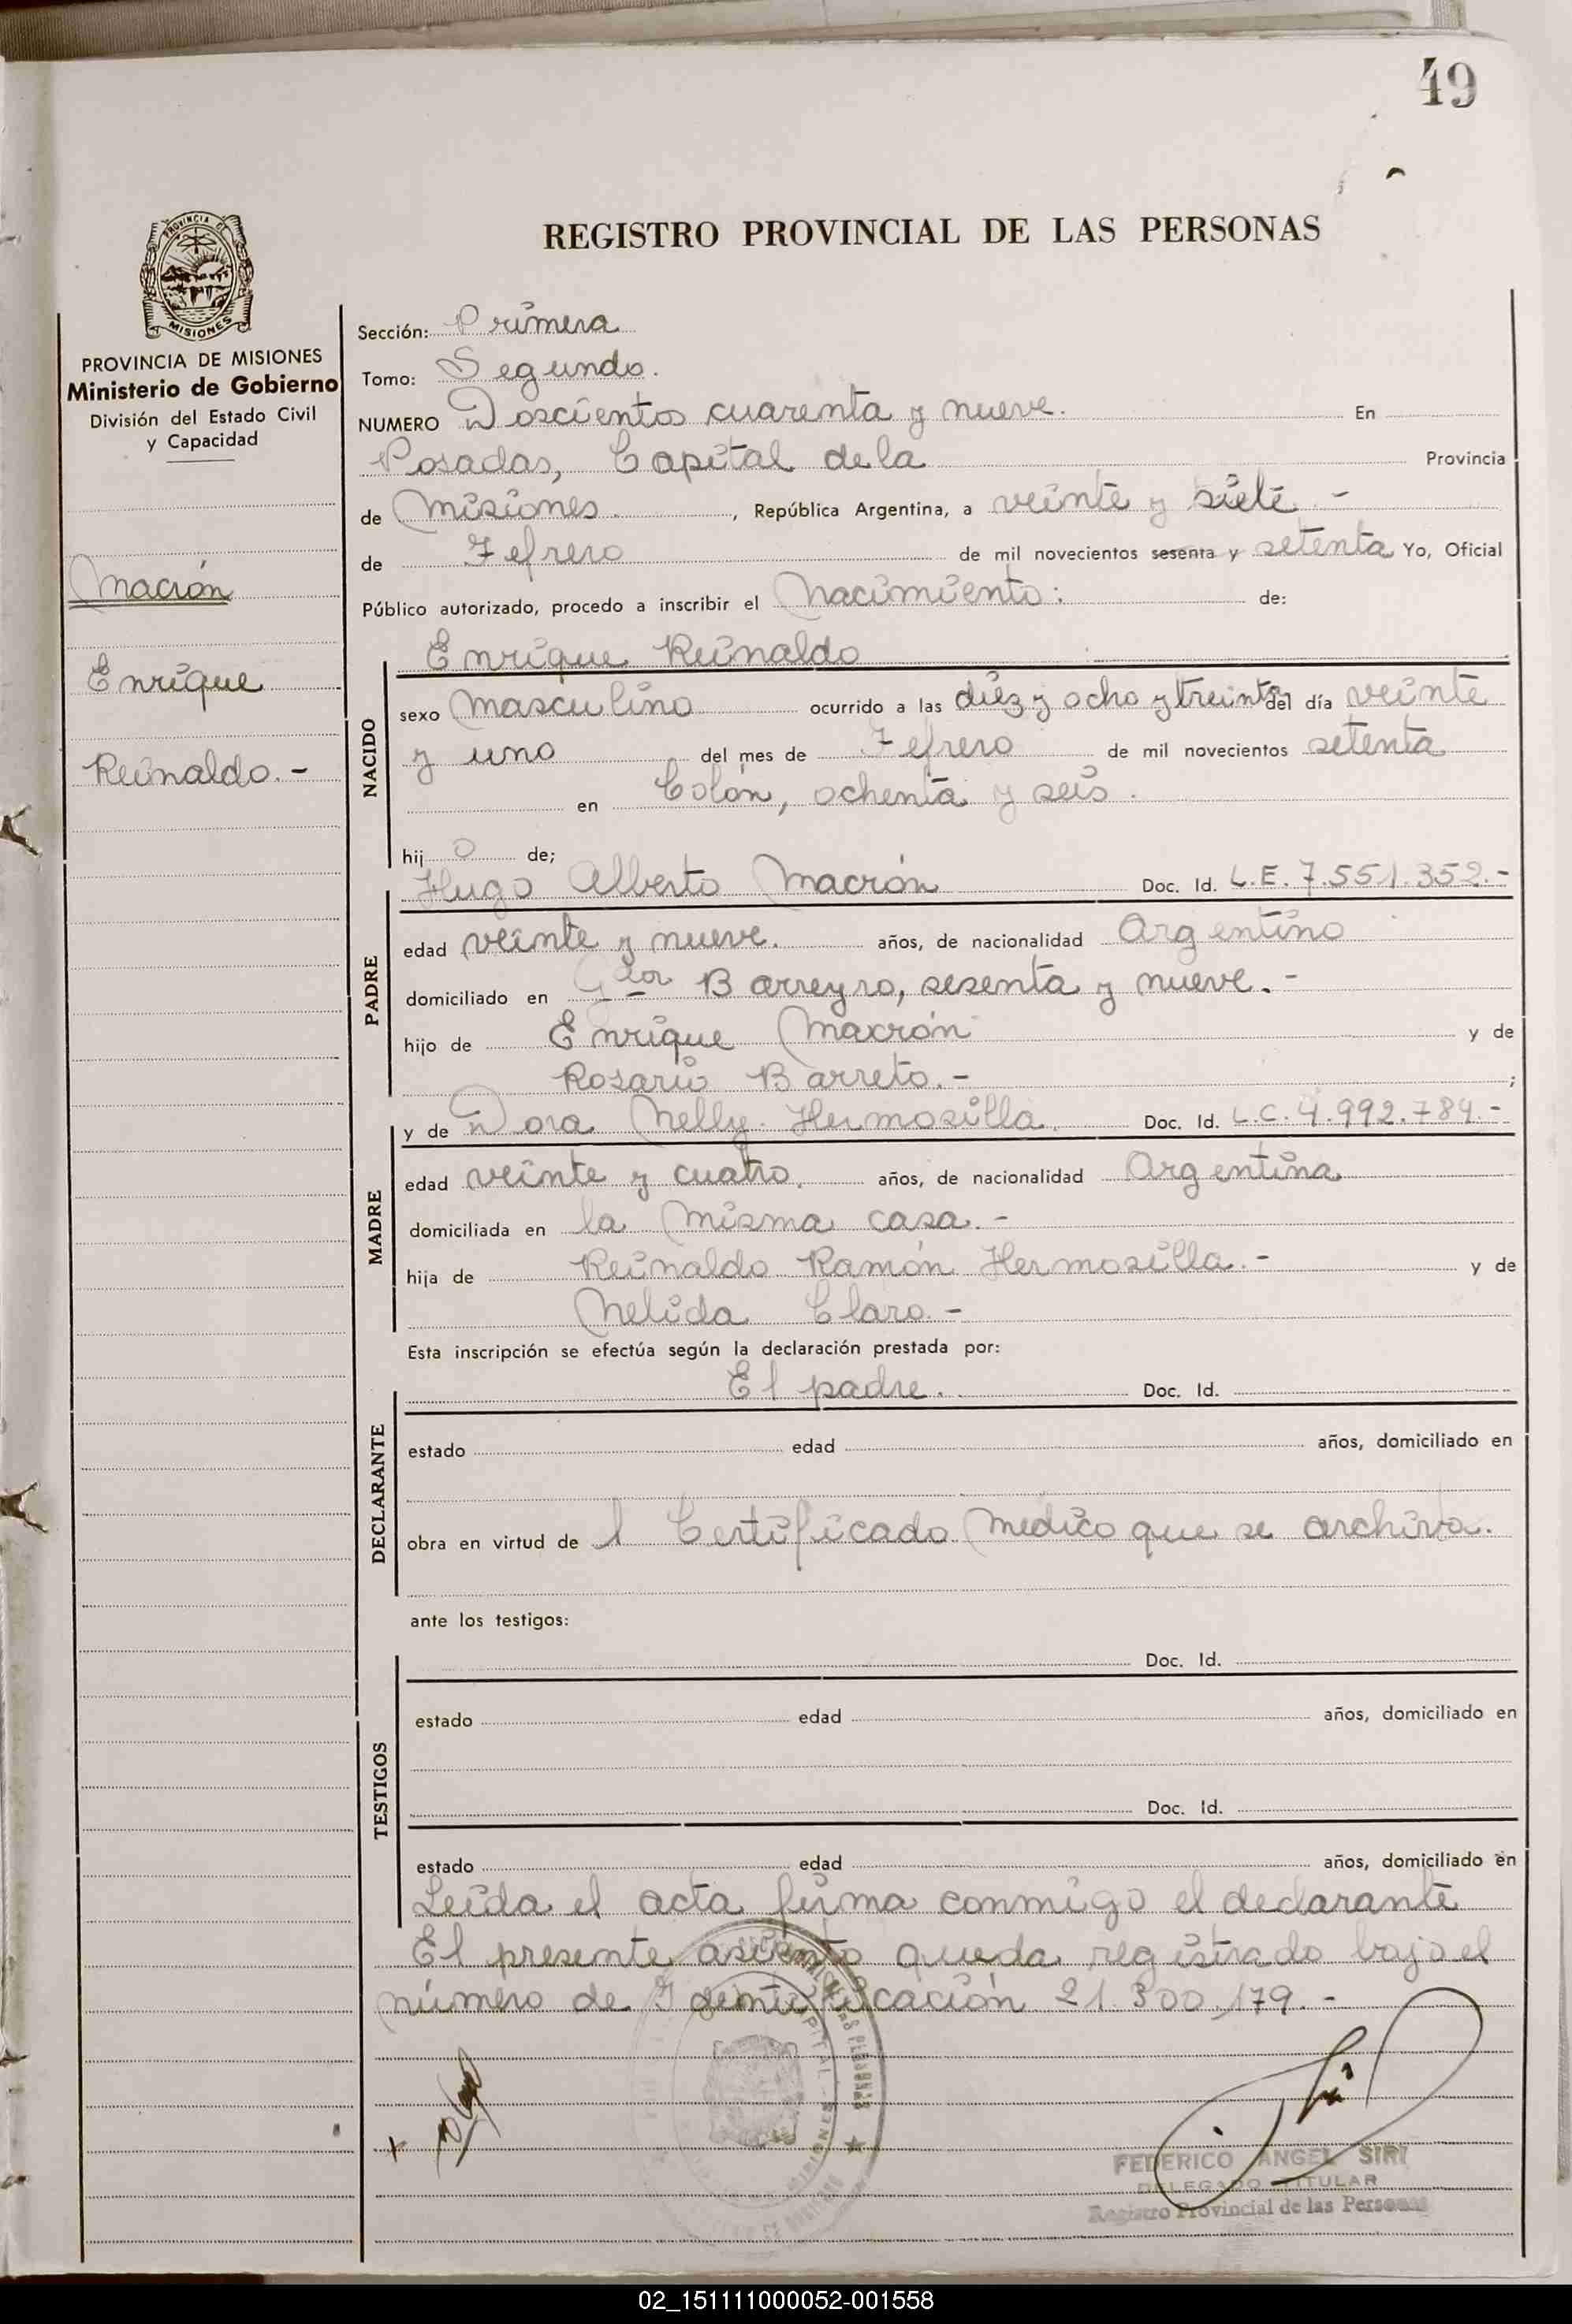 49
REGISTRO PROVINCIAL DE LAS PERSONAS
PROVINCIA DE MISIONES
Ministerio de Gobierno
División del Estado Civil
y Capacidad
Macrón
Enrique
Reinaldo.-
Sección: Primera
Tomo: Segundo.
NUMERO Doscientos cuarenta y nueve. En
Posadas, Capital de la Provincia
de Misiones. , República Argentina, a veinte y siete -
de Febrero de mil novecientos sesenta y setenta Yo, Oficial
Público autorizado, procedo a inscribir el Nacimiento: de:
Enrique Reinaldo
NACIDO
sexo Masculino ocurrido a las diez y ocho y treinta del día veinte
y uno del mes de Febrero de mil novecientos setenta
en Colón, ochenta y seis.
hij o de;
PADRE
Hugo Alberto Macrón Doc. Id. L.E. 7.551.352.-
edad veinte y nueve. años, de nacionalidad Argentino
domiciliado en Gdor Barreyro, sesenta y nueve.-
hijo de Enrique Macrón y de
Rosario Barreto.- ;
MADRE
y de Dora Nelly Hermosilla. Doc. Id. L.C. 4.992.784.-
edad veinte y cuatro. años, de nacionalidad Argentina
domiciliada en la misma casa.-
hija de Reinaldo Ramón Hermosilla.- y de
Nelida Claro.-
Esta inscripción se efectúa según la declaración prestada por:
DECLARANTE
El padre. Doc. Id.
estado edad años, domiciliado en
obra en virtud de l Certificado Medico que se archiva.
ante los testigos:
TESTIGOS
Doc. Id.
estado edad años, domiciliado en
Doc. Id.
estado edad años, domiciliado en
Leida el acta firma conmigo el declarante
El presente asiento queda registrado bajo el
número de Identificación 21.300.179.-
FEDERICO ANGEL SIRI
DELEGADO TITULAR
Registro Provincial de las Personas
02_151111000052-001558